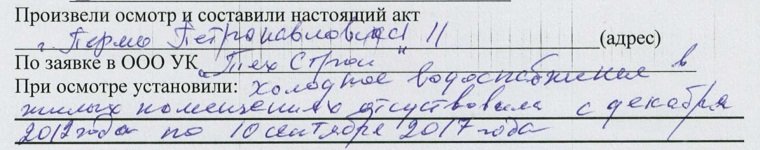 Произвели осмотр и составили настоящий акт
г. Пермь Петропавловская 11 (адрес)
По заявке в ООО УК "Тех Строй"
При осмотре установили: холодное водоснабжение в
жилых помещениях отсутствовала с декабря
2012 года по 10 сентября 2017 года